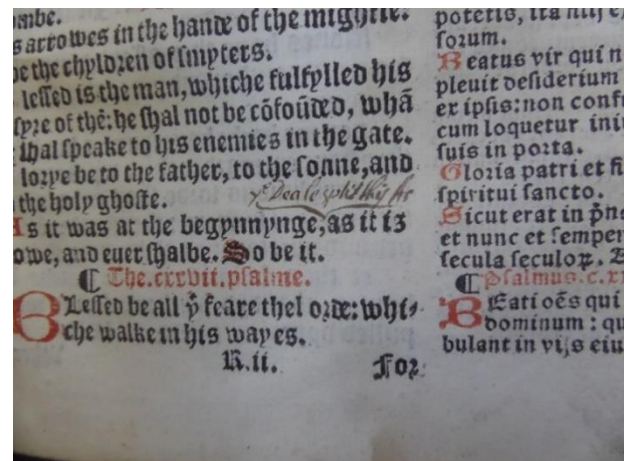 ombe.
s arrowes in the hande of the mightie.
be the chyldren of smyters.
lessed is the man, whiche fulfylled his
syre of thē: he shal not be cōfoūded, whā
shal speake to his enemies in the gate.
lorye be to the father, to the sonne, and
the holy ghoste.
As it was at the begynnynge, as it is
owe, and euer shalbe. So be it.
¶ The.cxxvii.psalme.
BLessed be all þͭ feare thel orde: whi-
che walke in his wayes.
R.ii. For
poteris, ita
sorum.
Beatus vir qui n
pleuit desiderium
ex ipsis: non conf
cum loquetur ini
suis in porta.
Gloria patri et fi
spiritui sancto.
Sicut erat in pͥn
et nunc et semper
secula seculoꝝ.
¶ Psalmus.c.x
BEati oēs qui
dominum: qu
bulant in vijs eiu